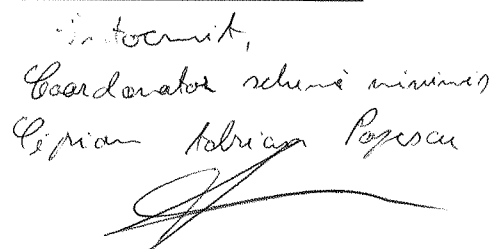 Întocmit,
Coordonator schemă minimis
Ciprian Adrian Popescu